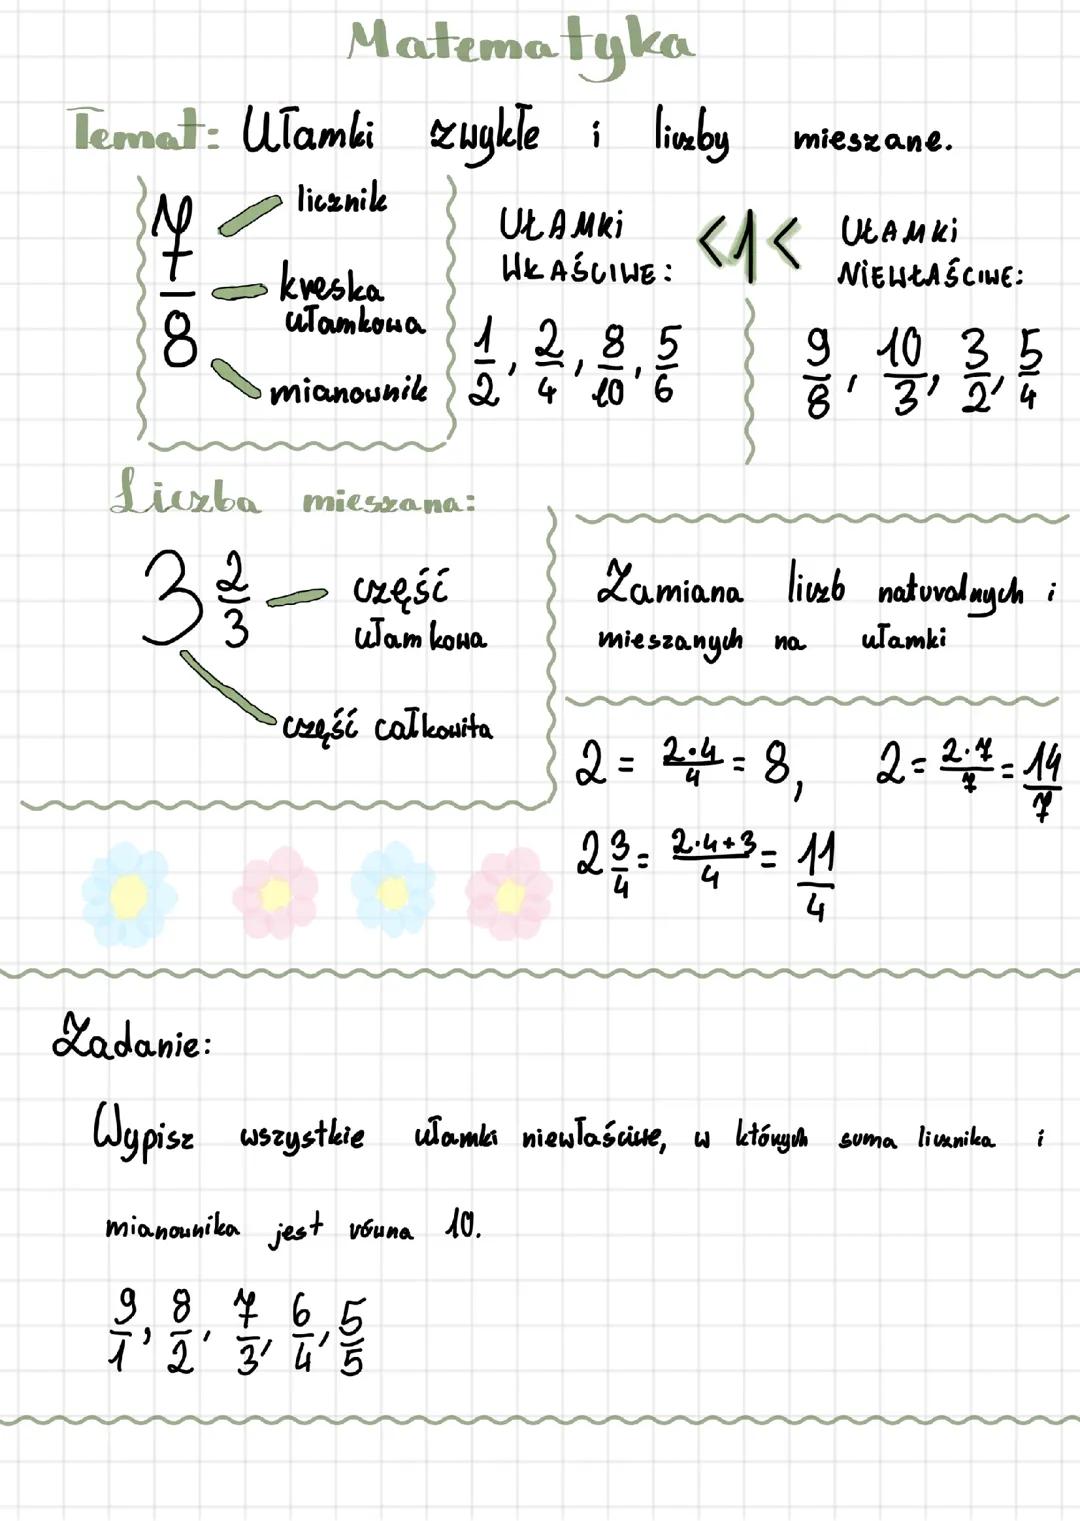 Matematyka
Temat: Ułamki zwykłe i liczby mieszane.
7/8
licznik
kreska
ułamkowa
mianownik
UŁAMKI
WŁAŚCIWE:
<1<
UŁAMKI
NIEWŁAŚCIWE:
1/2, 2/4, 8/10, 5/6
9/8, 10/3, 3/2, 5/4
Liczba mieszana:
3 2/3
część
ułamkowa
część całkowita
Zamiana liczb naturalnych i
mieszanych na ułamki
2 = 2·4/4 = 8, 2 = 2·7/7 = 14/7
2 3/4 = 2·4+3/4 = 11/4
Zadanie:
Wypisz wszystkie ułamki niewłaściwe, w których suma licznika i
mianownika jest równa 10.
9/1, 8/2, 7/3, 6/4, 5/5